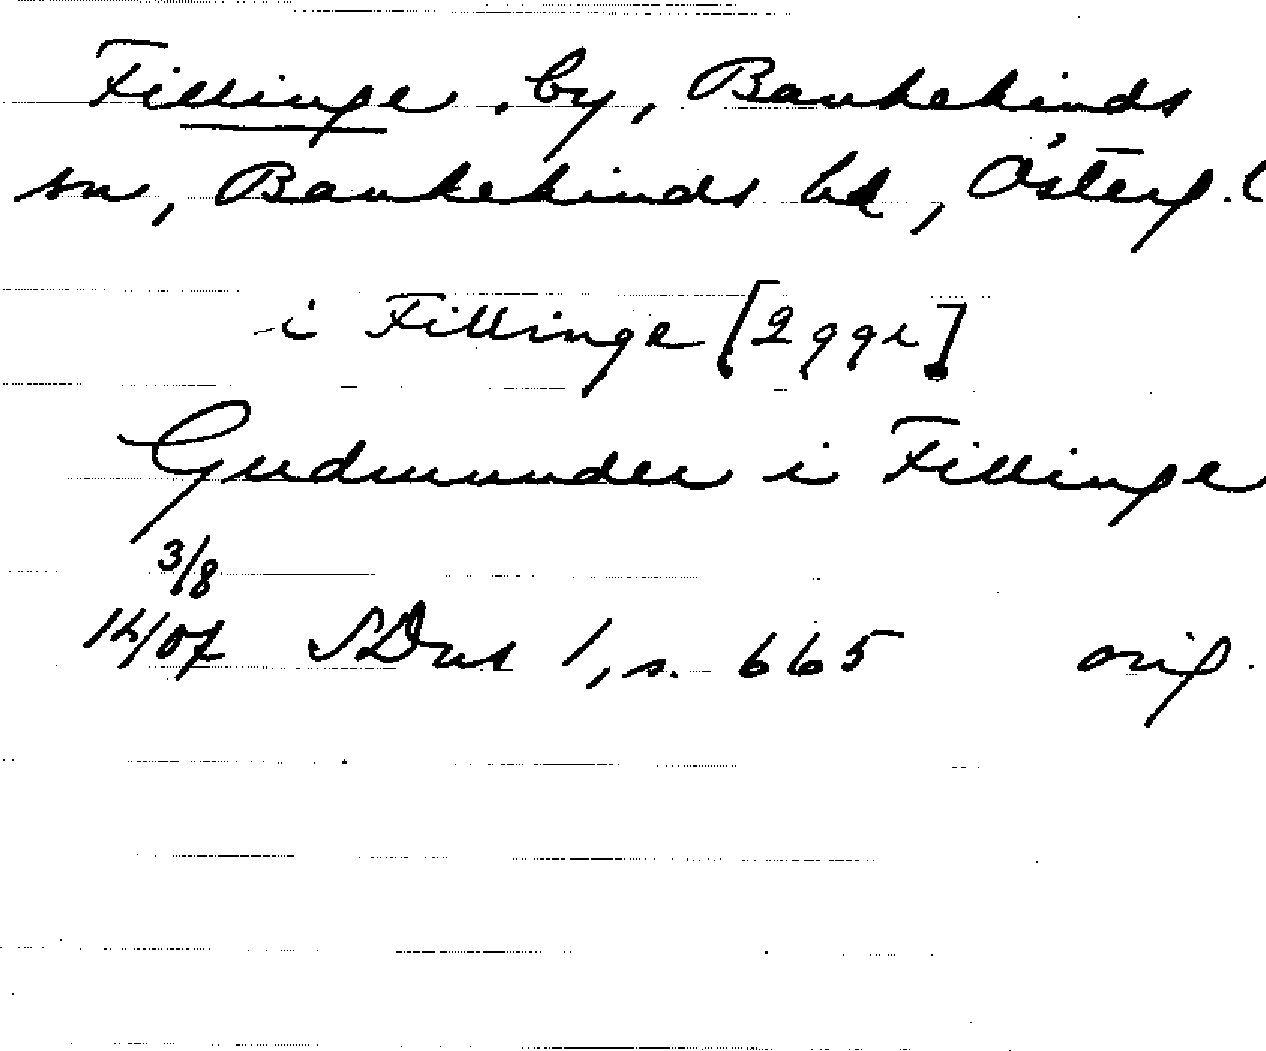 Fillinge, by, Bankekinds
sn, Bankekinds hd, Österg.
i Fillinge [2 ggr]
Gudmunder i Fillinge
3/8
14/07 SDns 1, s. 665 orig.